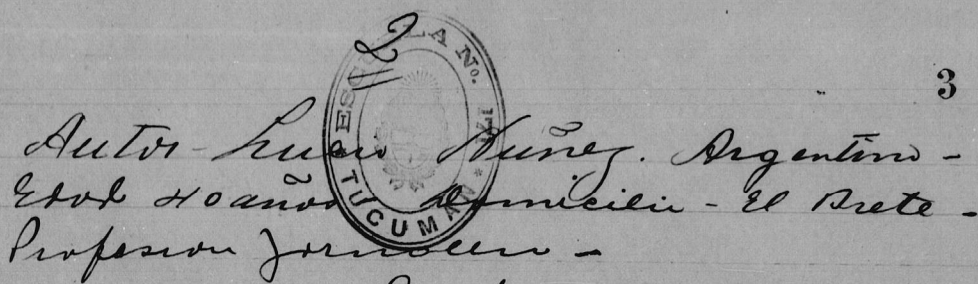 2
3
ESCUELA No. 171 * TUCUMAN *
Autor - Lucas Nuñez. Argentino -
Edad 40 años Domicilio - El Brete -
Profesion Jornalero -